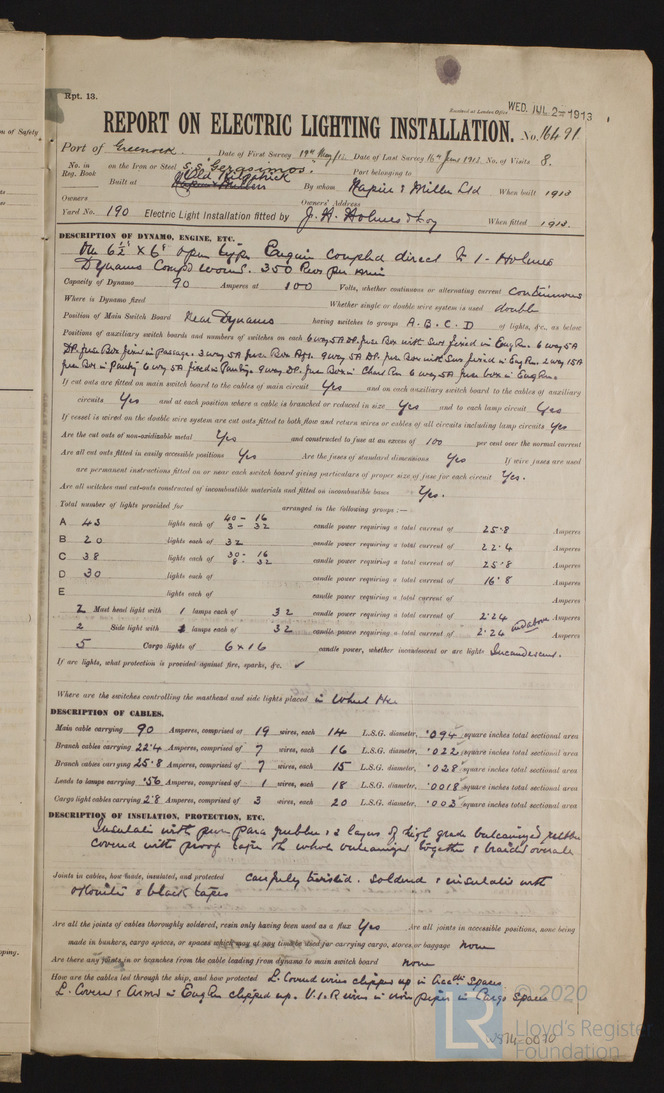 Rpt. 13.
Received at London Office WED. JUL 2 - 1913
REPORT ON ELECTRIC LIGHTING INSTALLATION. No. 16491
Port of Greenock Date of First Survey 19th May/13 Date of Last Survey 16th June 1913 No. of Visits 8.
No. in Reg. Book on the Iron or Steel S.S "Gerasimos" Port belonging to
Built at Old Kilpatrick By whom Napier & Miller Ltd When built 1913
Owners Owners' Address
Yard No. 190 Electric Light Installation fitted by J. H. Holmes & Coy When fitted 1913.
DESCRIPTION OF DYNAMO, ENGINE, ETC.
One 6½" x 6" open type Engine coupled direct to 1 - Holmes
Dynamo Compd wound. 350 Rev per min
Capacity of Dynamo 90 Amperes at 100 Volts, whether continuous or alternating current Continuous
Where is Dynamo fixed Whether single or double wire system is used double
Position of Main Switch Board Near Dynamo having switches to groups A. B. C. D of lights, &c., as below
Positions of auxiliary switch boards and numbers of switches on each 6 way 5A DP. fuse Box with Swr fixed in Eng Rm. 6 way 5A
DP. fuse Box fixed in Passage. 3 way 5A fuse Box Aft. 9 way 5A DP. fuse Box with Swr fixed in Eng Rm. 2 way 15A
fuse Box in Pantry 6 way 5A fixed in Pantry. 9 way DP. fuse Box in Chart Rm 6 way 5A fuse box in Eng Rm.
If cut outs are fitted on main switch board to the cables of main circuit Yes and on each auxiliary switch board to the cables of auxiliary
circuits Yes and at each position where a cable is branched or reduced in size Yes and to each lamp circuit Yes
If vessel is wired on the double wire system are cut outs fitted to both flow and return wires or cables of all circuits including lamp circuits Yes
Are the cut outs of non-oxidizable metal Yes and constructed to fuse at an excess of 100 per cent over the normal current
Are all cut outs fitted in easily accessible positions Yes Are the fuses of standard dimensions Yes If wire fuses are used
are permanent instructions fitted on or near each switch board giving particulars of proper size of fuse for each circuit Yes.
Are all switches and cut-outs constructed of incombustible materials and fitted on incombustible bases Yes.
Total number of lights provided for arranged in the following groups :—
A 43 lights each of 40 - 16 3 - 32 candle power requiring a total current of 25.8 Amperes
B 20 lights each of 32 candle power requiring a total current of 22.4 Amperes
C 38 lights each of 30 - 16 8 - 32 candle power requiring a total current of 25.8 Amperes
D 30 lights each of candle power requiring a total current of 16.8 Amperes
E lights each of candle power requiring a total current of Amperes
2 Mast head light with 1 lamps each of 32 candle power requiring a total current of 2.24 Amperes
2 Side light with 1 lamps each of 32 candle power requiring a total current of 2.24 Amperes
incl above
5 Cargo lights of 6 x 16 candle power, whether incandescent or arc lights Incandescent.
If arc lights, what protection is provided against fire, sparks, &c. ✓
Where are the switches controlling the masthead and side lights placed in Wheel Hse
DESCRIPTION OF CABLES.
Main cable carrying 90 Amperes, comprised of 19 wires, each 14 L.S.G. diameter, .094 square inches total sectional area
Branch cables carrying 22.4 Amperes, comprised of 7 wires, each 16 L.S.G. diameter, .022 square inches total sectional area
Branch cables carrying 25.8 Amperes, comprised of 7 wires, each 15 L.S.G. diameter, .028 square inches total sectional area
Leads to lamps carrying .56 Amperes, comprised of 1 wires, each 18 L.S.G. diameter, .0018 square inches total sectional area
Cargo light cables carrying 2.8 Amperes, comprised of 3 wires, each 20 L.S.G. diameter, .003 square inches total sectional area
DESCRIPTION OF INSULATION, PROTECTION, ETC.
Insulated with pure para rubber & 2 layers of high grade vulcanized rubber
covered with proof tape the whole vulcanized together & braided overall
Joints in cables, how made, insulated, and protected carefully twisted. soldered & insulated with
okonite & black tapes
Are all the joints of cables thoroughly soldered, resin only having been used as a flux Yes Are all joints in accessible positions, none being
made in bunkers, cargo spaces, or spaces which may at any time be used for carrying cargo, stores, or baggage none
Are there any joints in or branches from the cable leading from dynamo to main switch board none
How are the cables led through the ship, and how protected L. Covered wires clipped up in Accn spaces
L. Covered & Armd in Eng Rm clipped up. V.I.R wires in iron pipes in Cargo Spaces
© 2020
LR Lloyd's Register
Foundation
W574-0070